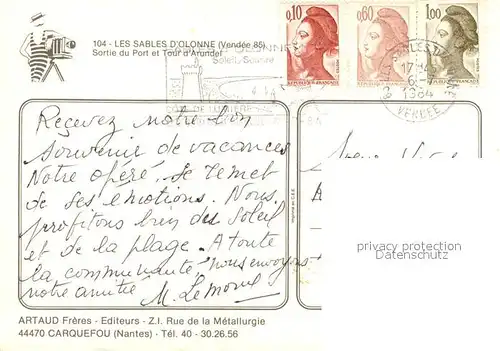 104 - LES SABLES D'OLONNE (Vendée 85)
Sortie du Port et Tour d'Arundel
0,10
0,60
1,00
17 H
6-7
1984
VENDEE
Recevez notre bon
souvenir de vacances
Notre opéré se remet
de ses émotions. Nous
profitons bien du soleil
et de la plage. A toute
la communauté, nous envoyons
notre amitié M. Lemoine
privacy protection
Datenschutz
ARTAUD Frères - Editeurs - Z.I. Rue de la Métallurgie
44470 CARQUEFOU (Nantes) - Tél. 40 - 30.26.56